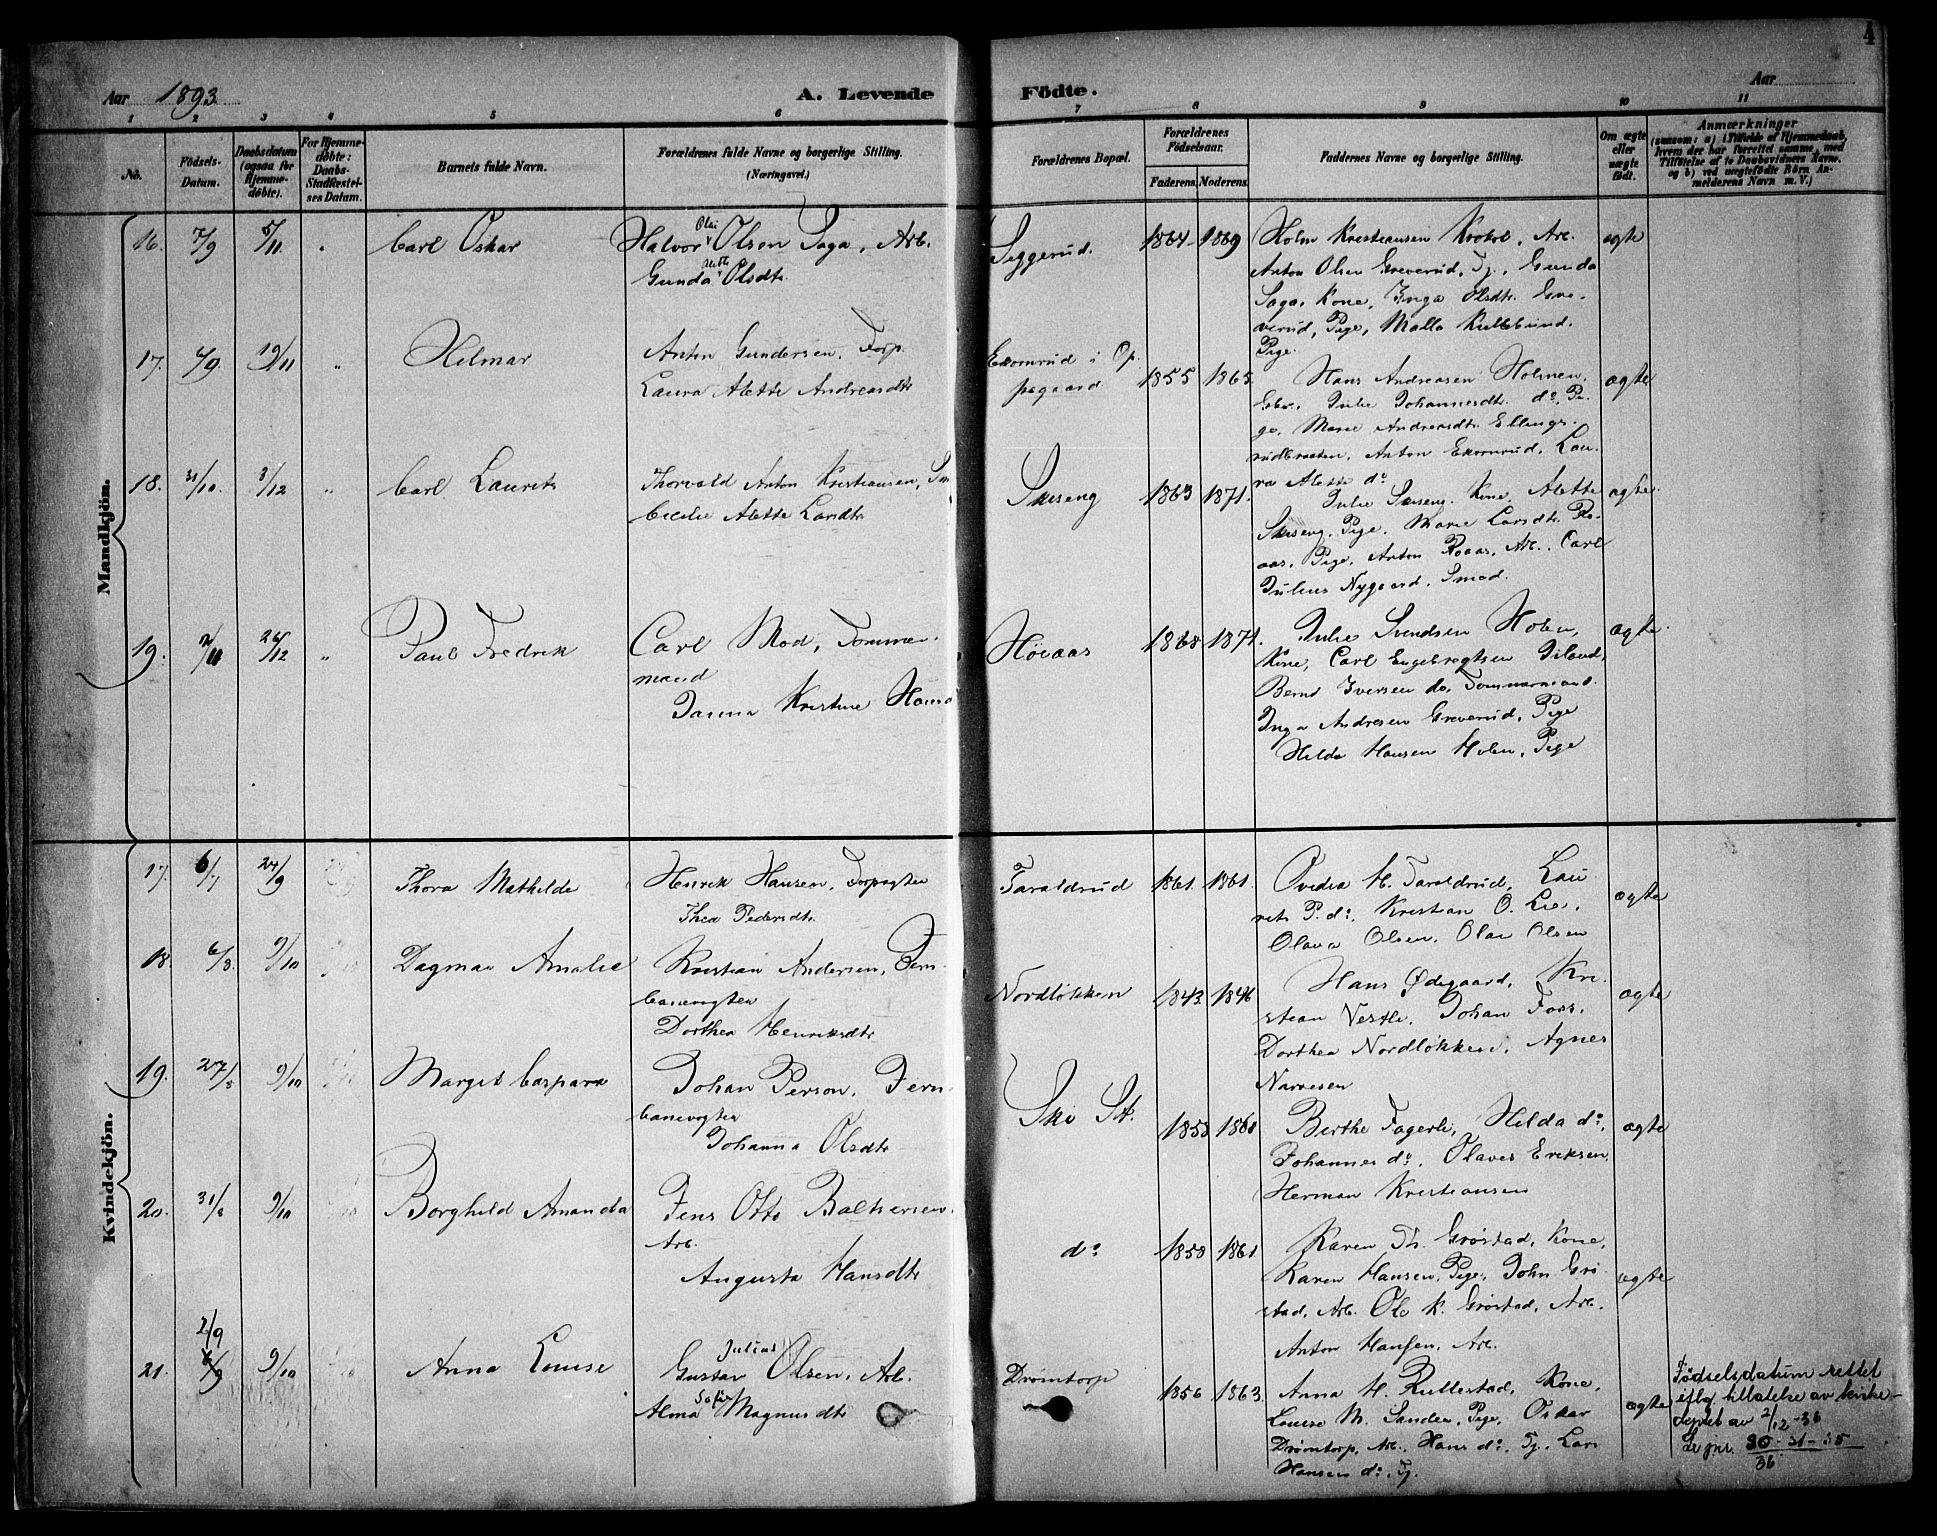 4
Aar 1893. A. Levende Födte. Aar
1 2 3 4 5 6 7 8 9 10 11
No. Födsels-Datum. Daabsdatum (ogsaa for Hjemme-döbte). For Hjemme-döbte: Daabs-Stadfæstel-ses Datum. Barnets fulde Navn. Forældrenes fulde Navne og borgerlige Stilling. (Næringsvei.) Forældrenes Bopæl. Forældrenes Födselsaar. Faderens. Moderens. Faddernes Navne og borgerlige Stilling. Om ægte eller uægte födt. Anmærkninger (saasom: a) i Tilfælde af Hjemmedaab, hvem der har forrettet samme, med Tilföielse af to Daabsvidners Navne. og b) ved uægtefödte Börn An-melderens Navn m. V.)
Mandkjön.
16. 7/9 5/11 " Carl Oskar
Halvor Olai Olsen Saga, Arb.
Gunda Olsdtr.
Siggerud. 1864. 1869
Holm Kristiansen Krokol, Arb.
Anton Olsen Greverud, Tj., Gunda
Saga, Kone, Inga Olsdtr. Gre-
verud, Pige, Malla Kullebund,
Pige.
ægte
17. 4/9. 19/11 " Hilmar
Anton Gundersen, Forp.
Laura Alette Andreasdtr
Ekornrud i Op-
pegaard 1855 1865.
Hans Andreasen Holmen,
Gbr. Julie Johannesdtr. do, Pi-
ge, Marie Andreasdtr. Ellings-
rudbraaten, Anton Ekornrud, Lau-
ra Alette do
ægte
18. 31/10. 3/12 " Carl Laurits
Thorvald Anton Kristiansen,
Cecilie Alette Larsdtr
Skiseng 1863 1871.
Julie Skiseng, Kone, Alette
Skiseng, Pige, Marie Larsdtr. Ro-
aas, Pige, Anton Roaas, Arb., Carl
Julius Nygaard, Smed.
ægte.
19. 2/11 26/12 " Paul Fredrik
Carl Mod, Tømmer-
mand
Kristine Hansd
Høiaas 1868 1871.
Julie Svendsen Holen,
Kone, Carl Engebregtsen
Bernt Iversen do, Tømmermand.
Inga Andresen Greverud, Pige
Hilda Hansen Holen, Pige
ægte.
Kvindekjön.
17. 6/7 24/9 Thora Mathilde
Henrik Hansen, Forpagter
Thea Pedersdtr.
Taraldrud 1861. 1861.
Ovidia M. Taraldrud, Lau
rits P. do, Kristian O. Lie,
Olava Olsen, Olai Olsen
ægte
18. 6/8. 9/10 Dagmar Amalie
Kristian Andersen, Jern-
banevogter
Dorthea Henriksdtr
Nordløkken 1843. 1846
Hans Ødegaard, Kri-
stian Vestli, Johan Foss,
Dorthea Nordløkken, Agnes
Narvesen
ægte
19. 27/8 9/10 Margit Caspara
Johan Person, Jern-
banevogter
Johanna Olsdtr
Ski St. 1853 1860
Berthe Fagerli, Hilda do,
Johannes do, Olaves Eriksen,
Herman Kristiansen
ægte
20. 31/8 9/10 Borghild Amanda
Jens Otto Baltsersen.
Arb.
Augusta Hansdtr
do 1858 1861
Karen Th. Grøstad, Kone,
Karen Hansen, Pige, John Grø
stad, Arb. Ole K. Grøstad, Arb.
Anton Hansen, Arb.
ægte
2/9
21. 6/9 9/10 Anna Louise
Gustav Julius Olsen, Arb.
Alma Sofie Magnusdtr
Drømtorp 1856 1863.
Anna M. Rullestad, Kone,
Louise M. Sander, Pige, Oskar
Drømtorp, Arb., Hans do, Tj., Lars
Hansen do, Tj.
ægte
Fødselsdatum rettet
iflg. tillatelse av kirke-
dept av 2/12-36